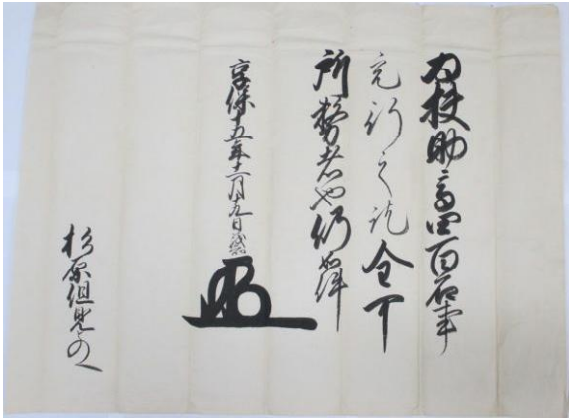 為扶助高四百石事
充行之訖全可
所務者也仍如件
享保十五年十一月九日
杉原但見のへ